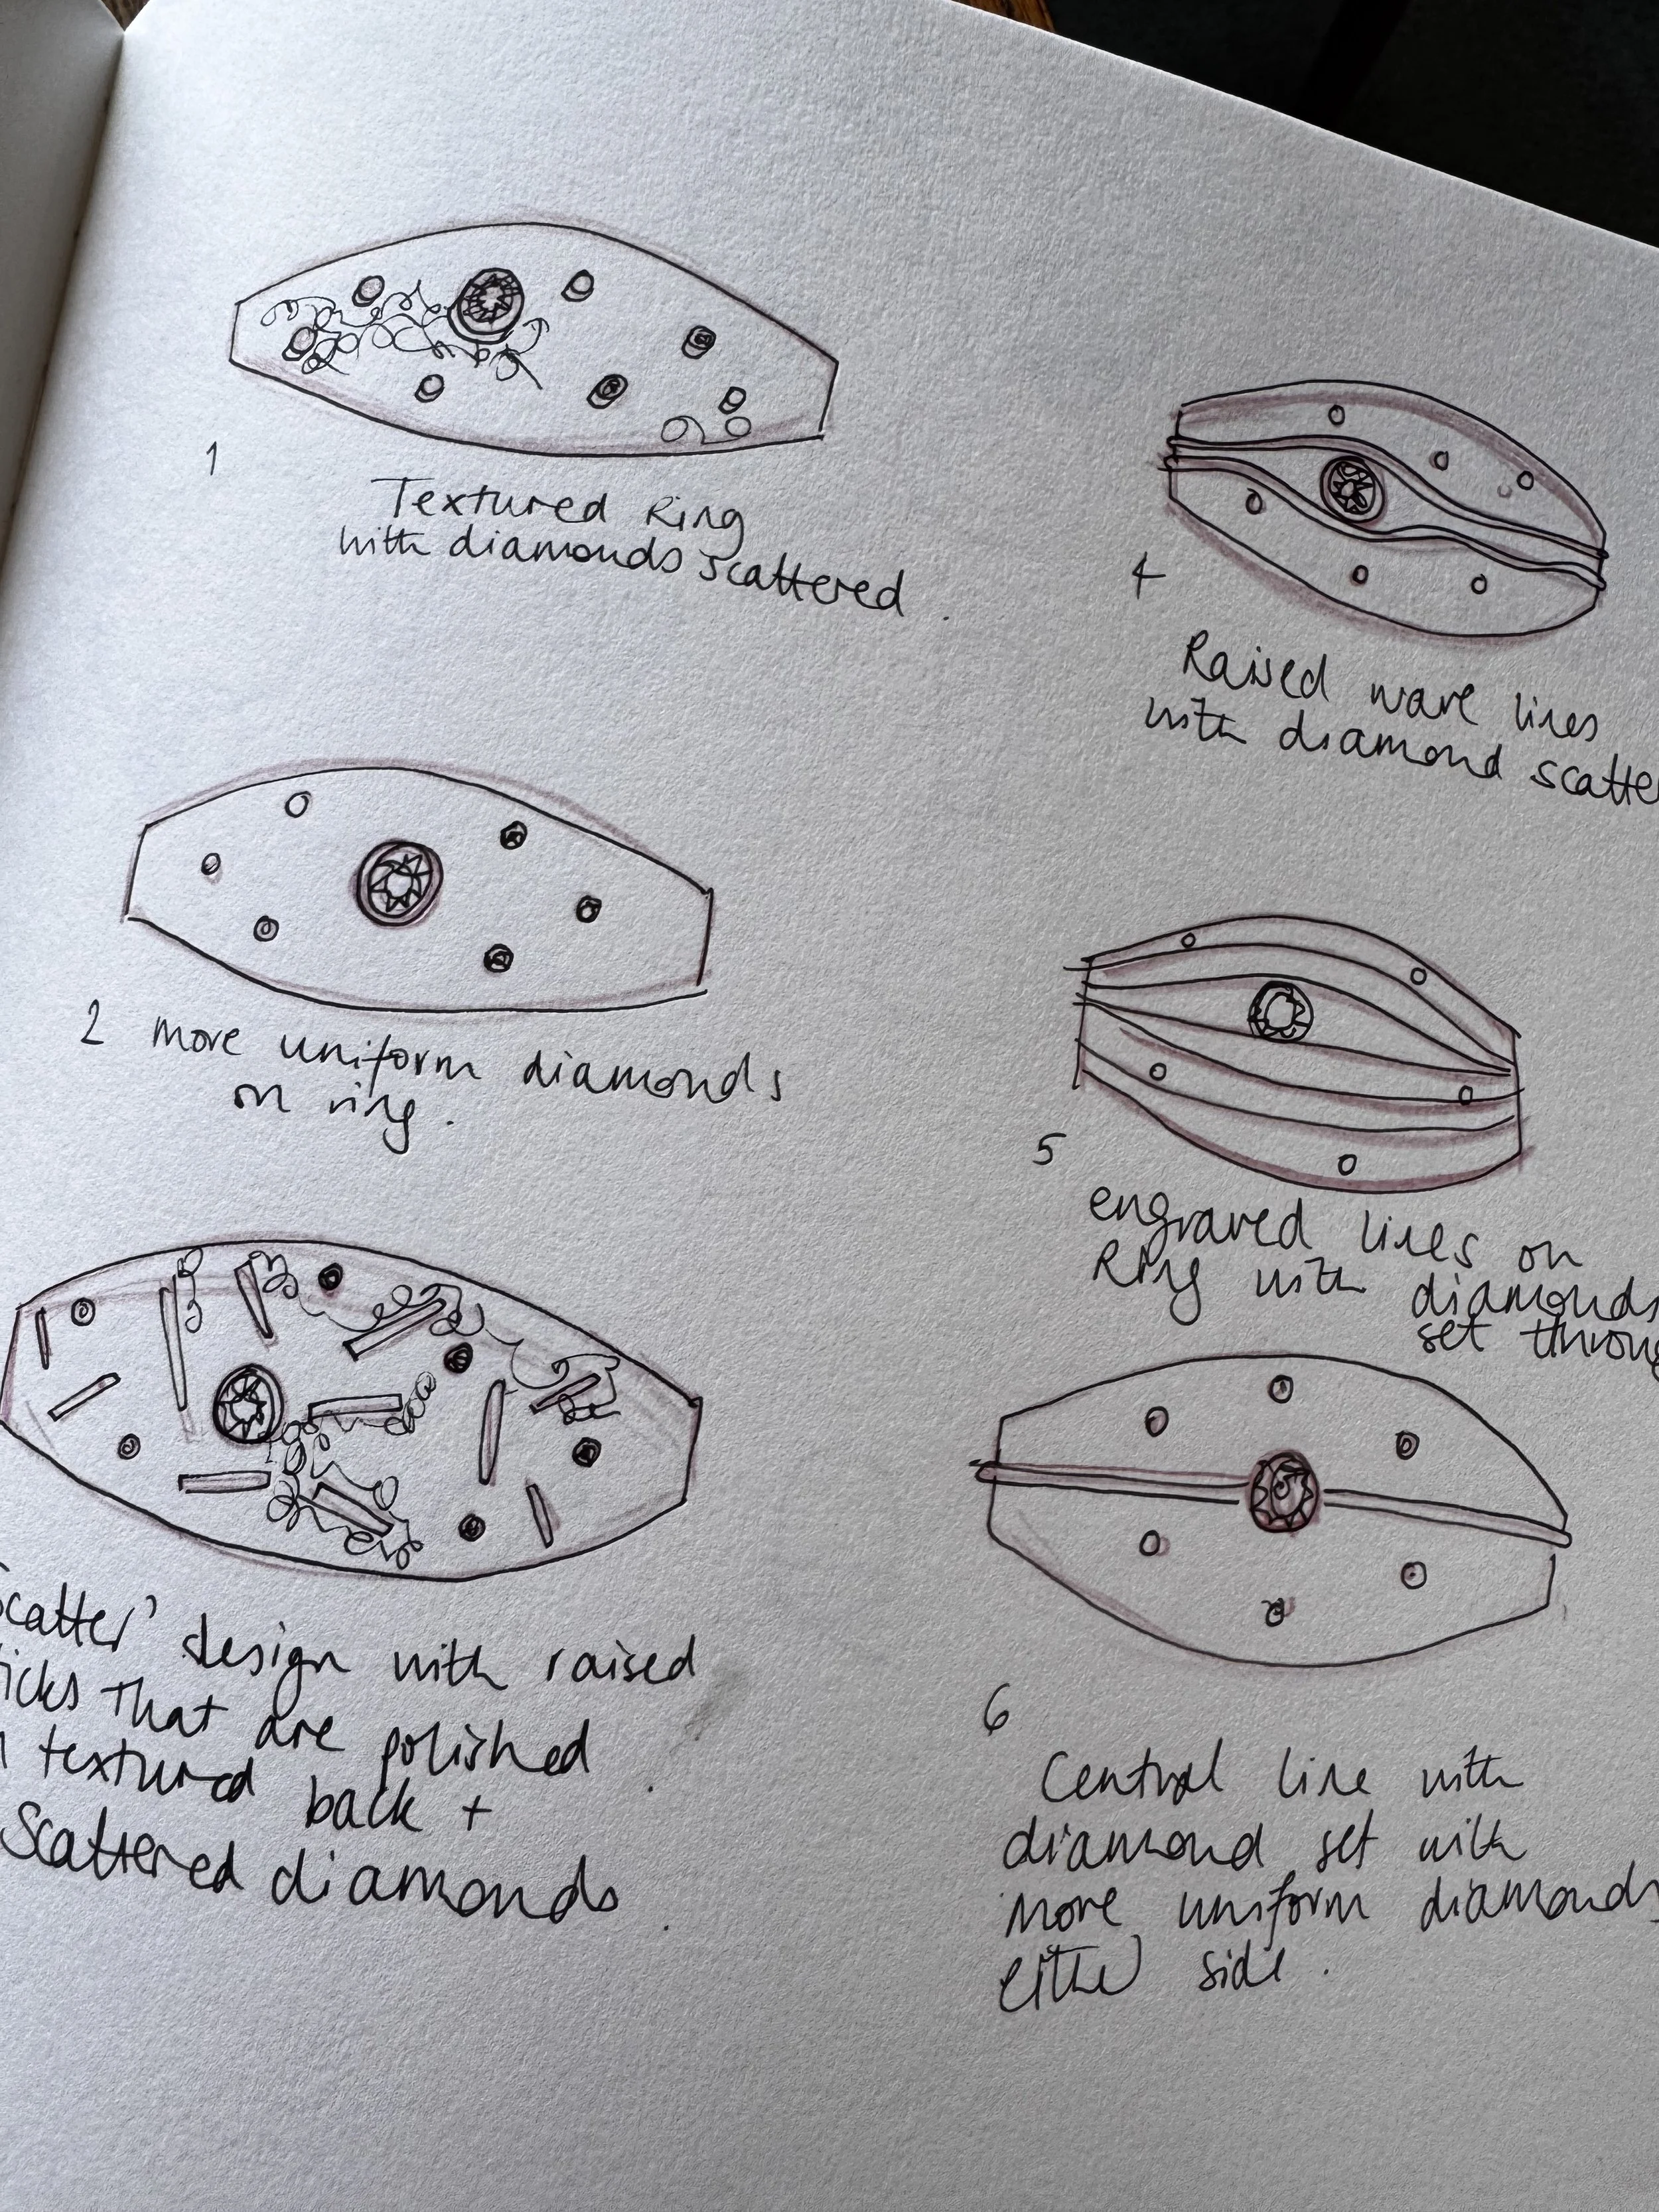 1
Textured Ring
with diamonds scattered.
2 more uniform diamonds
on ring.
Scatter' design with raised
that are polished
textured back +
Scattered diamonds.
4
Raised wave lines
with diamond scatte
5
engraved lines on
Ring with diamonds
set throug
6
Central line with
diamond set with
more uniform diamonds
either side.